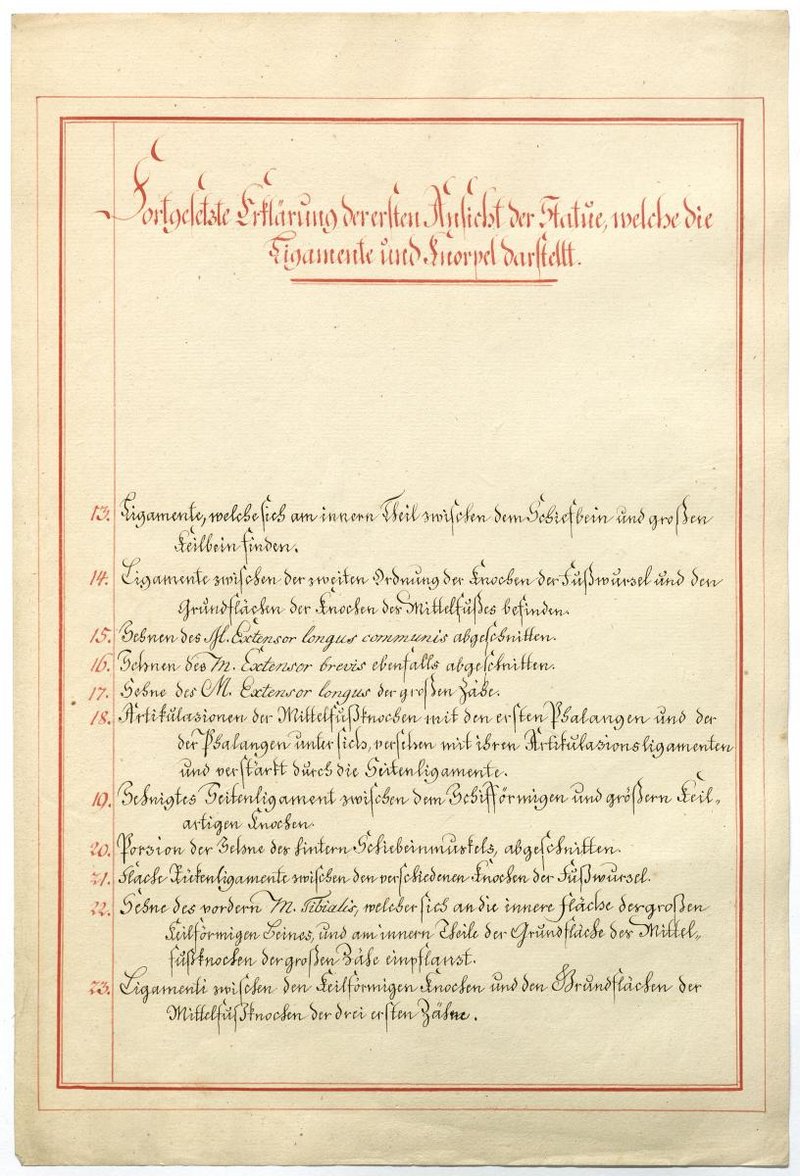 Fortgesetzte Erklärung der ersten Ansicht der Statue, welche die
Ligamente und Knorpel darstellt.
13. Ligamente, welche sich am innern Theil zwischen dem Schiefbein und großen
Keilbein finden.
14. Ligamente zwischen der zweiten Ordnung der Knochen der Fußwurzel und den
Grundflächen der Knochen des Mittelfußes befinden.
15. Sehnen des M. Extensor longus communis abgeschnitten.
16. Sehnen des M. Extensor brevis ebenfalls abgeschnitten.
17. Sehne des M. Extensor longus der großen Zähe.
18. Artikulazionen der Mittelfußknochen mit den ersten Phalangen und der
der Phalangen unter sich, versehen mit ihren Artikulazionsligamenten
und verstärkt durch die Seitenligamente.
19. Sehnigtes Seitenligament zwischen dem Schifförmigen und größern Keil-
artigen Knochen.
20. Porzion der Sehne des hintern Schiebeinmuskels, abgeschnitten.
21. Flache Rückenligamente zwischen den verschiedenen Knochen der Fußwurzel.
22. Sehne des vordern M. Tibialis, welcher sich an die innere Fläche des großen
Keilförmigen Beines, und am innern Theile der Grundfläche des Mittel-
fußknochen der großen Zähe einpflanzt.
23. Ligamenti zwischen den Keilförmigen Knochen und den Grundflächen der
Mittelfußknochen der drei ersten Zähne.